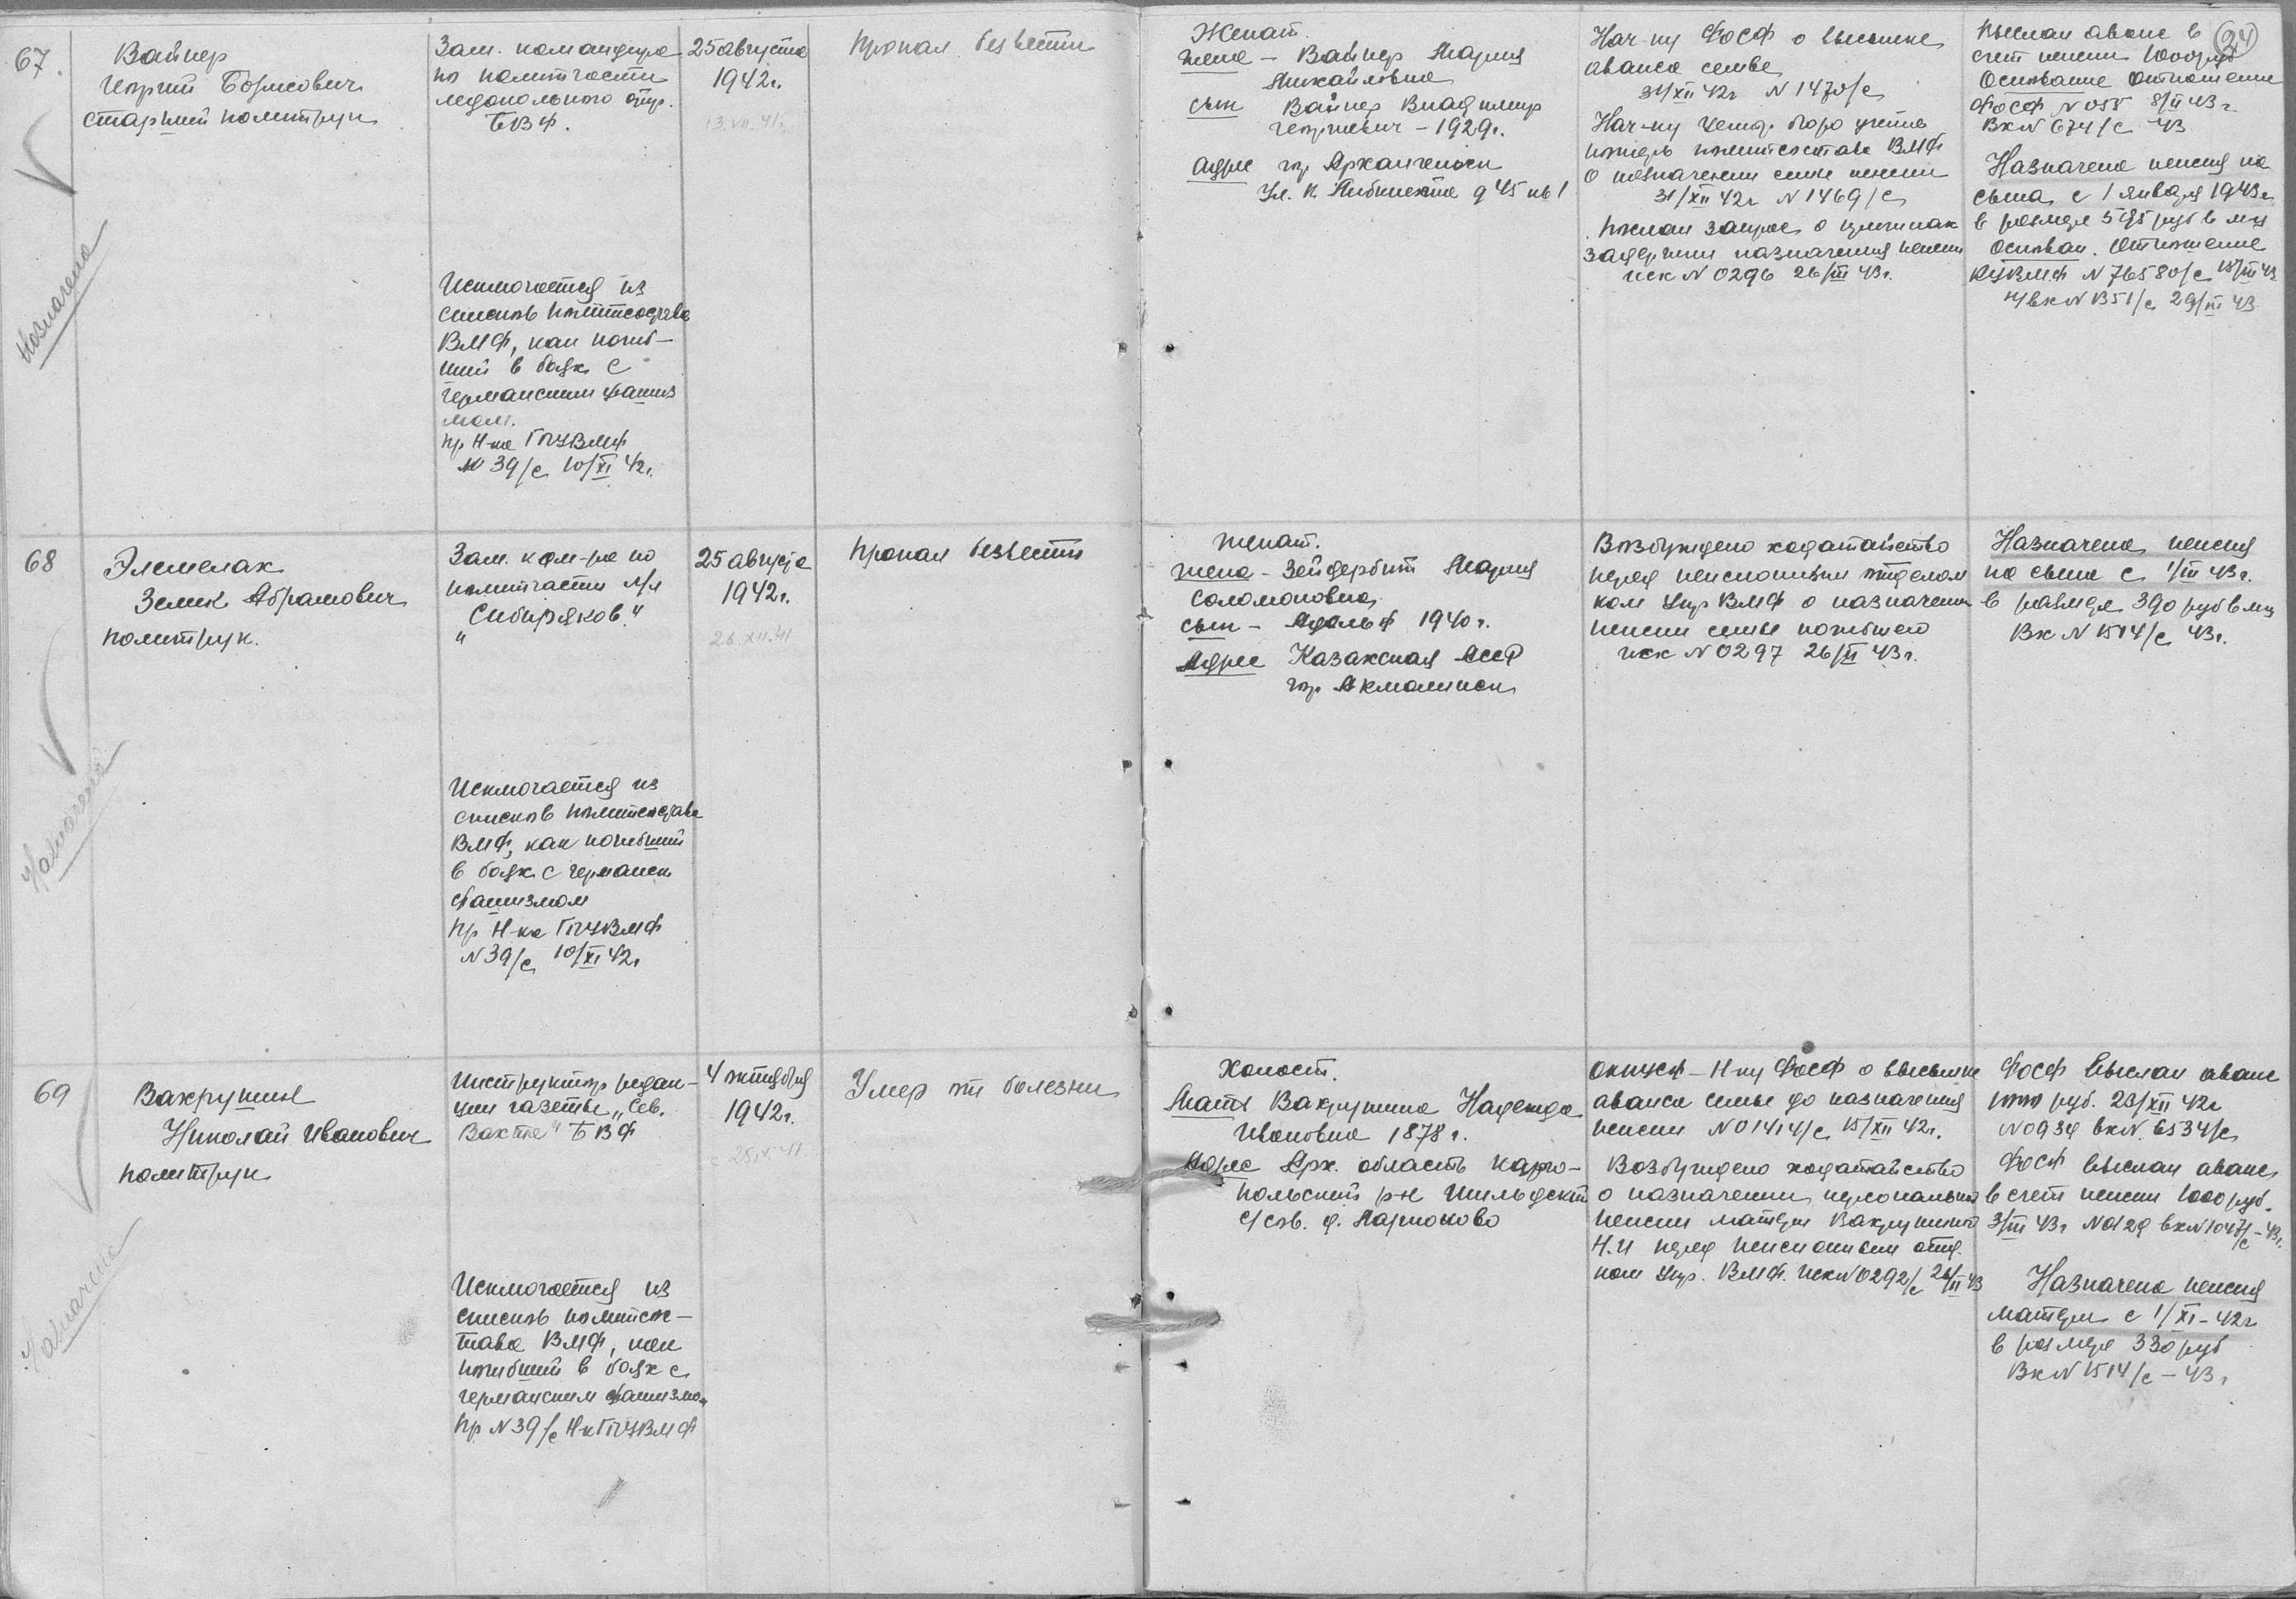 24
67.
Вайнер
Георгий Борисович
старший политрук
Назначена
Зам. командира
по политчасти
ледокольного отр.
БВФ.
Исключается из
списков политсостава
ВМФ, как погиб-
ший в боях с
германским фашиз
мом.
пр Н-ка ГПУВМФ
№ 39/с 10/XI 42г.
25 августа
1942г.
13.VII.41г.
Пропал безвести
Женат.
жена - Вайнер Мария
Михайловна
сын Вайнер Владимир
Георгиевич - 1929г.
Адрес гор Архангельск
Ул. К. Либкнехта д 45 кв 1
Нач-ку ФОСФ о высылке
аванса семье
31/XII 42г N 1470/с
Нач-ку Центр. бюро учета
потерь политсостава ВМФ
о назначении семье пенсии
31/XII 42г N 1469/с
Послан запрос о причинах
задержки назначения пенсии
исх N 0296 26/III 43г.
Выслан аванс в
счет пенсии 1000 руб
Основание Отношение
ФОСФ N 055 8/II 43г
Вх N 674/с 43
Назначена пенсия на
сына с 1 января 1943г
в размере 595 руб в мц
Основан. Отношение
N 76580/с 15/III 43
29/III 43
68
Элемелах
Зелик Абрамович
политрук.
Назначена
Зам. ком-ра по
политчасти л/п
"Сибиряков."
Исключается из
списков политсостава
ВМФ, как погибший
в боях с германск
фашизмом
Пр Н-ка ГПУВМФ
N 39/с 10/XI 42г
25 августа
1942г.
26.XII.41
Пропал безвести
женат.
жена - Зейдербит Мария
Соломоновна
сын - Адольф 1940г.
Адрес Казахская АССР
гор Акмолинск
Возбуждено ходатайство
перед пенсионным отделом
ком Упр ВМФ о назначении
пенсии семье погибшего
исх N 0297 26/II 43г.
Назначена пенсия
на сына с 1/III 43г.
в размере 390 руб в мц
Вх N 1514/с 43г.
69
Вахрушин
Николай Иванович
политрук
Назначена
Инструктор редак-
ции газеты „Сев.
Вахта" БВФ
Исключается из
списков политсос-
тава ВМФ, как
погибший в боях с
германским фашизмом
Пр N 39/с Н-к ГПУВМФ
4 октября
1942г.
Умер от болезни
Холост.
Мать Вахрушина Надежда
Ивановна 1878г.
Адрес Арх. область Карго-
польский р-н Шильдский
с/сов. д. Ларионово
Н-ку ФОСФ о высылке
аванса семье до назначения
пенсии N 01414/с 15/XII 42г.
Возбуждено ходатайство
о назначении персональной
пенсии матери Вахрушиной
Н.И перед пенсионным отд.
ком Упр. ВМФ. исх N 0292/с 26/II 43
ФОСФ Выслан аванс
руб. 23/XII 42г
N 0934 вх N. 6534/с
ФОСФ выслан аванс
в счет пенсии 1000 руб.
3/III 43г N 0129 вх N 1047/с - 43г.
Назначена пенсия
матери с 1/XI - 42г
в размере 330 руб
Вх N 1514/с - 43г